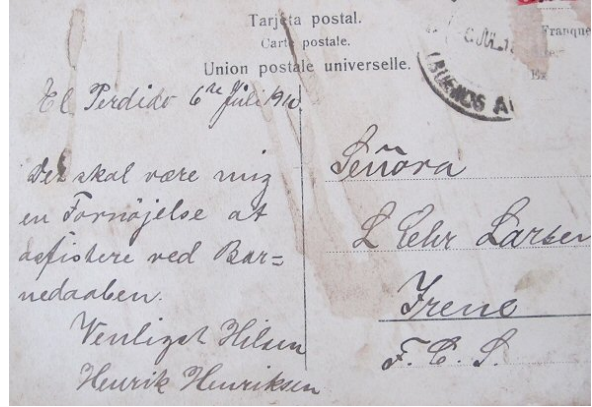 Tarjeta postal.
Carte postale.
Union postale universelle.
Franque
6 JUL 1
BUENOS A
El Perdido 6te Juli 1910
Det skal være mig
en Fornøjelse at
assistere ved Bar=
nedaaben.
Venligst Hilsen
Henrik Henriksen
Señora
L Chr Larsen
Irene
F. C. S.